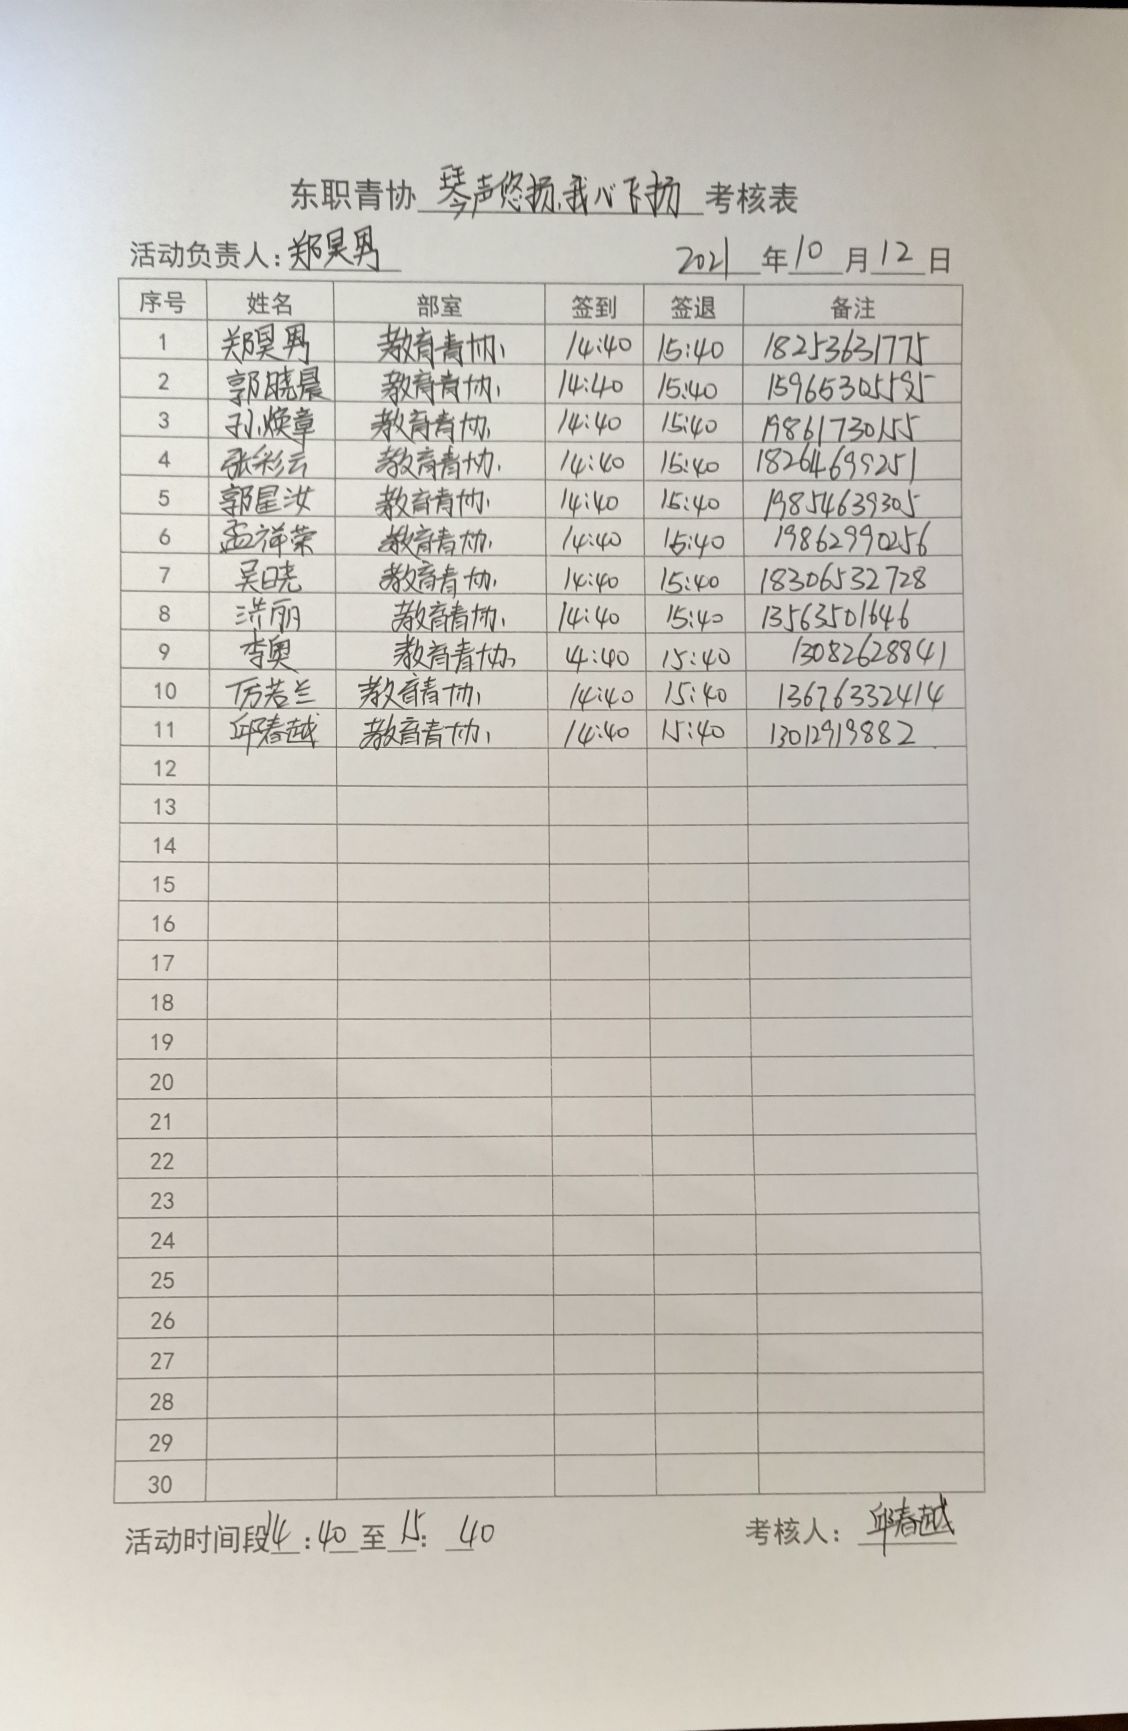 东职青协 琴声悠扬,我心飞扬 考核表
活动负责人: 郑昊男 2021 年 10 月 12 日
序号 姓名 部室 签到 签退 备注
1 郑昊男 教育青协 14:40 15:40 18253631775
2 郭晓晨 教育青协 14:40 15:40 15965305595
3 孙焕章 教育青协 14:40 15:40 19861730155
4 张彩云 教育青协 14:40 15:40 18264699251
5 郭星汝 教育青协 14:40 15:40 19854639305
6 孟祥荣 教育青协 14:40 15:40 19862990256
7 吴晓 教育青协 14:40 15:40 18306532728
8 洪丽 教育青协 14:40 15:40 13563501646
9 李奥 教育青协 14:40 15:40 13082628841
10 厉若兰 教育青协 14:40 15:40 13676332414
11 邱春越 教育青协 14:40 15:40 13012919882
12
13
14
15
16
17
18
19
20
21
22
23
24
25
26
27
28
29
30
活动时间段 14:40 至 15:40 考核人: 邱春越